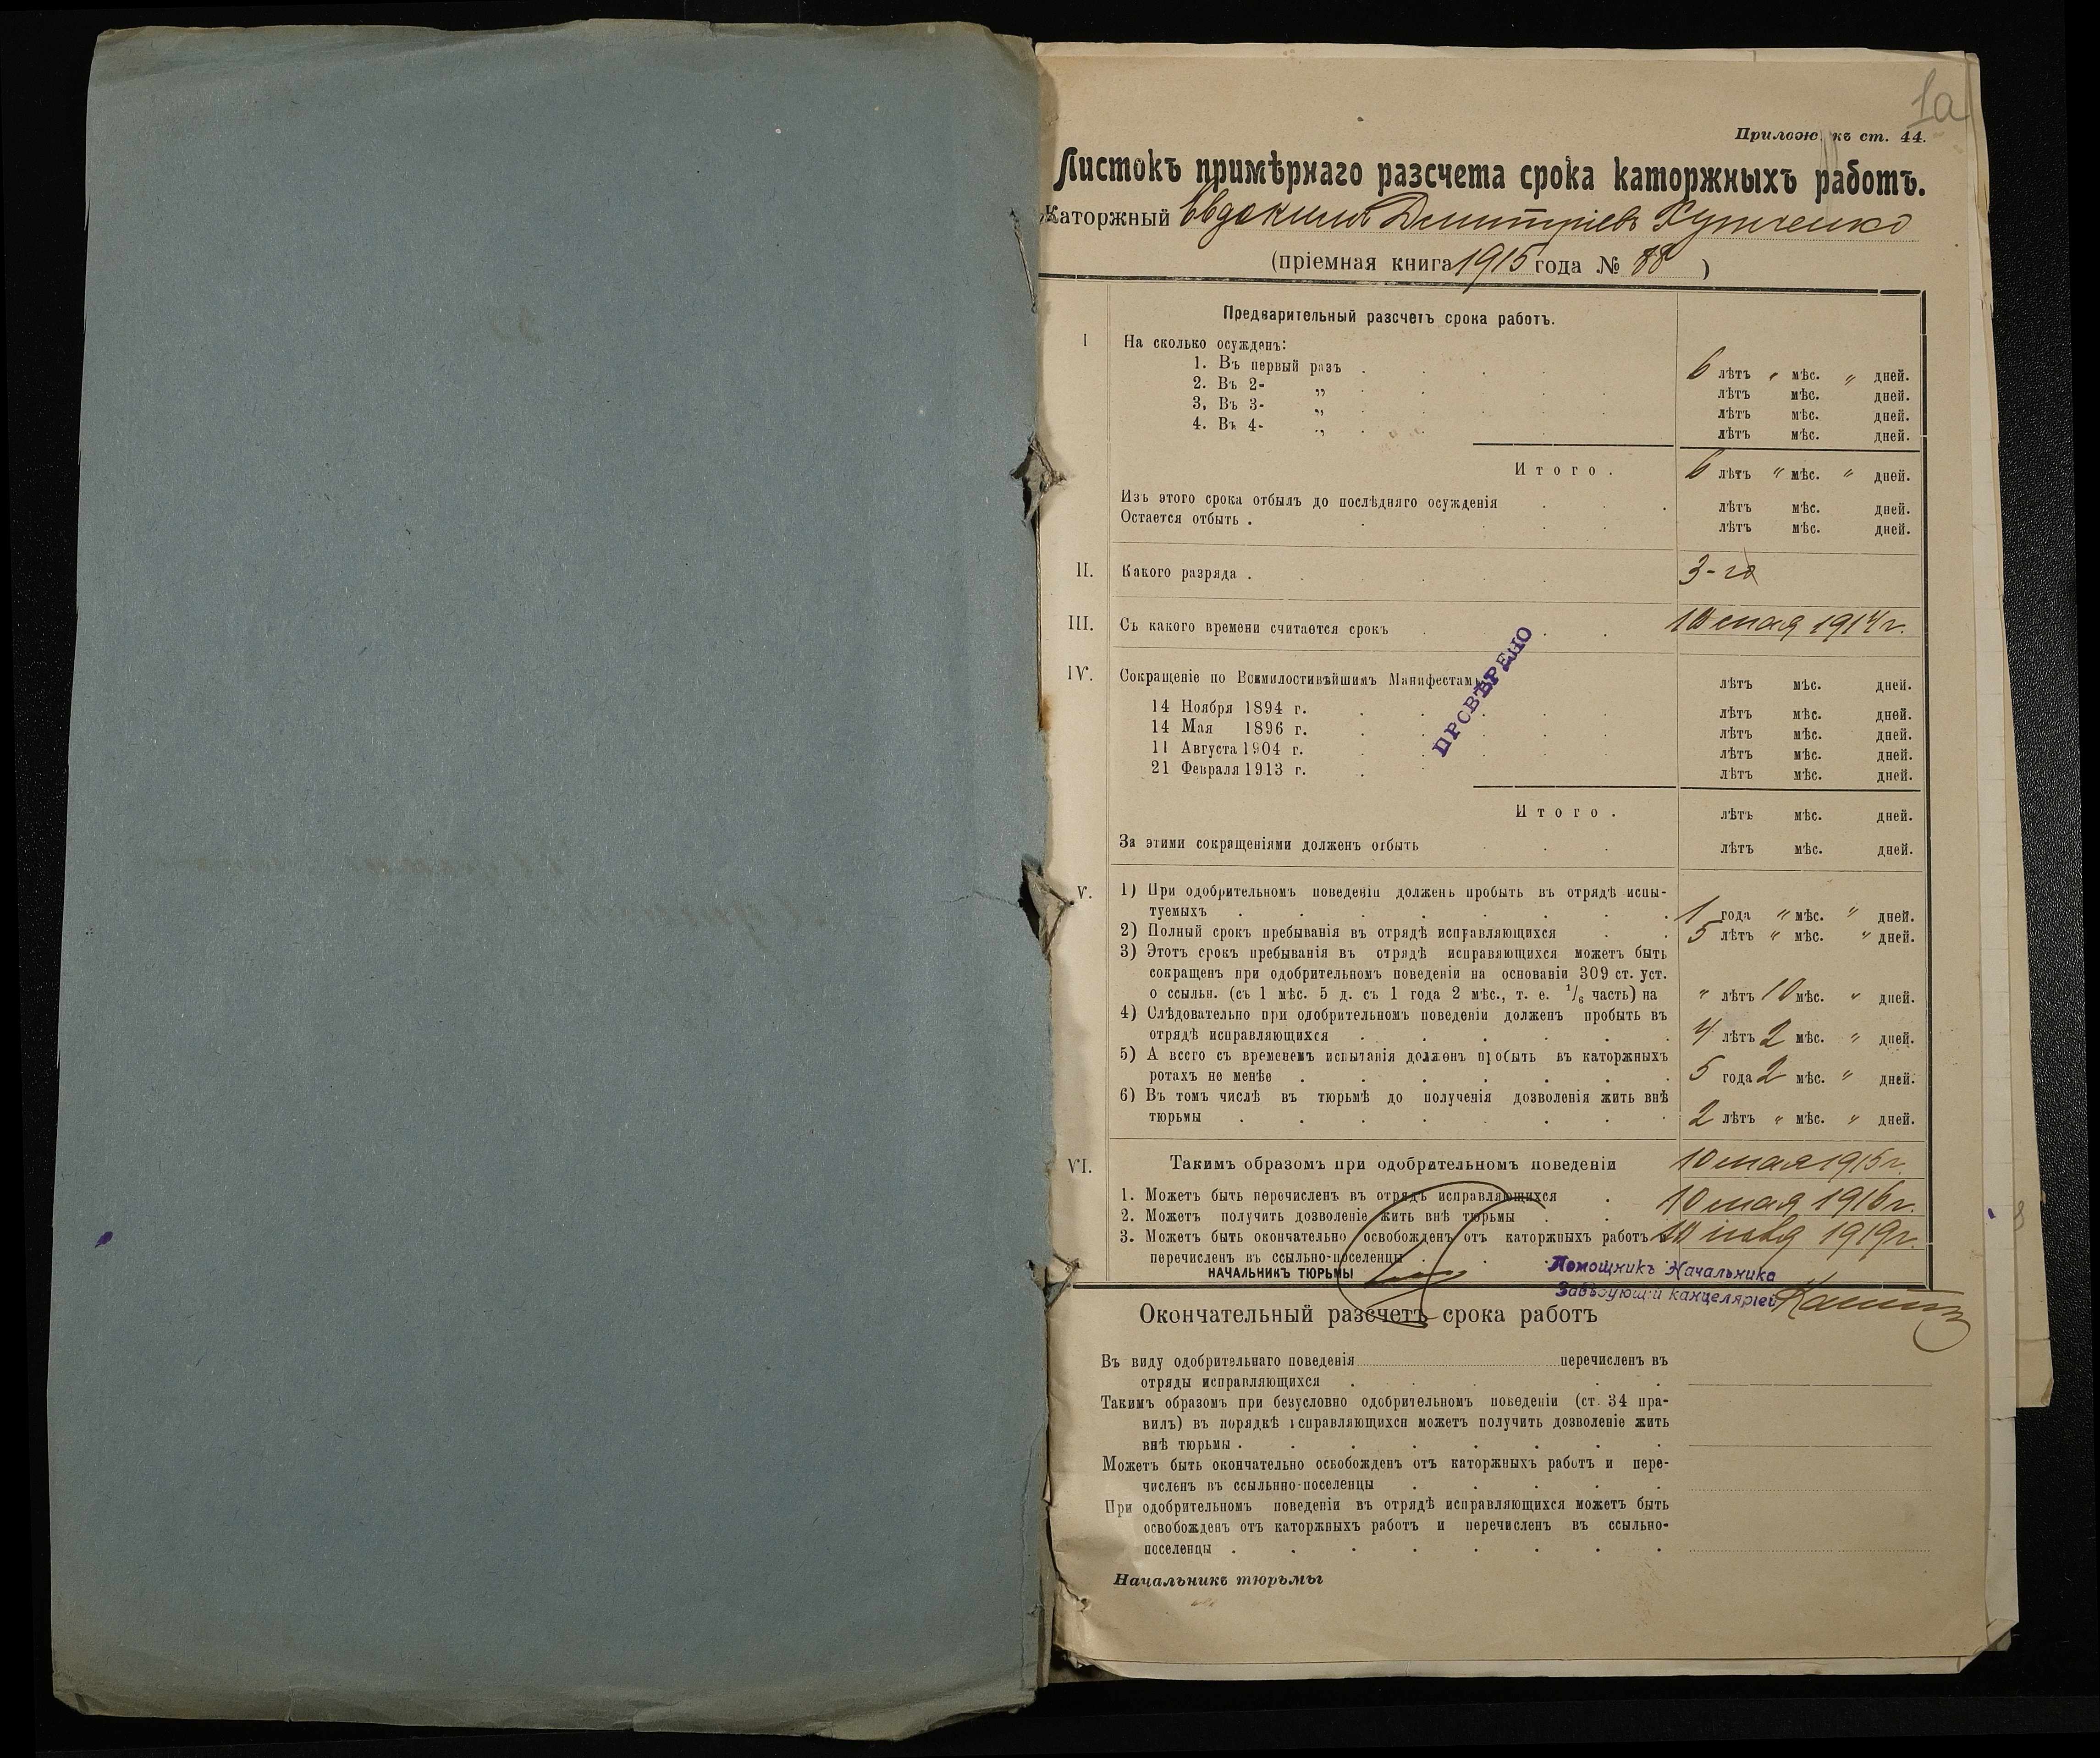 1а
Прилож. къ ст. 44.
Листокъ примѣрнаго разсчета срока каторжныхъ работъ.
Каторжный Евдокимъ Дмитріевъ
(пріемная книга 1915 года № 88 )
Предварительный разсчетъ срока работъ.
I На сколько осужденъ:
1. Въ первый разъ . . . . 6 лѣтъ " мѣс. " дней.
2. Въ 2- „ . . . . лѣтъ мѣс. дней.
3, Въ 3- „ . . . . лѣтъ мѣс. дней.
4. Въ 4- „ . . . лѣтъ мѣс. дней.
Итого. 6 лѣтъ " мѣс. " дней.
Изъ этого срока отбылъ до послѣдняго осужденія . . . лѣтъ мѣс. дней.
Остается отбыть . . . . . лѣтъ мѣс. дней.
II. Какого разряда . . . . 3-го
III. Съ какого времени считается срокъ . . . 10 мая 1914 г.
IV. Сокращеніе по Всемилостивѣйшимъ Манифестамъ лѣтъ мѣс. дней.
14 Ноября 1894 г. . . . . . лѣтъ мѣс. дней.
14 Мая 1896 г. . . . . . лѣтъ мѣс. дней.
11 Августа 1904 г. . . . . . лѣтъ мѣс. дней.
21 Февраля 1913 г. . лѣтъ мѣс. дней.
ПРОВѢРЕНО
Итого. лѣтъ мѣс. дней.
За этими сокращеніями долженъ отбыть . . . лѣтъ мѣс. дней.
V. 1) При одобрительномъ поведеніи долженъ пробыть въ отрядѣ испы-
туемыхъ . . . . . . . . 1 года " мѣс. " дней.
2) Полный срокъ пребыванія въ отрядѣ исправляющихся . . 5 лѣтъ " мѣс. " дней.
3) Этотъ срокъ пребыванія въ отрядѣ исправяющихся можетъ быть
сокращенъ при одобрительномъ поведеніи на основаніи 309 ст. уст.
о ссыльн. (съ 1 мѣс. 5 д. съ 1 года 2 мѣс., т. е. 1/6 часть) на " лѣтъ 10 мѣс. " дней.
4) Слѣдовательно при одобрительномъ поведеніи долженъ пробыть въ
отрядѣ исправляющихся . . . . . . 4 лѣтъ 2 мѣс. " дней.
5) А всего съ временемъ испытанія долженъ пробыть въ каторжныхъ
ротахъ не менѣе . . . . . . . 5 года 2 мѣс. " дней.
6) Въ томъ числѣ въ тюрьмѣ до полученія дозволенія жить внѣ
тюрьмы . . . . . . . . 2 лѣтъ " мѣс. " дней.
VI. Такимъ образомъ при одобрительномъ поведеніи 10 мая 1915 г.
1. Можетъ быть перечисленъ въ отрядъ исправляющихся . 10 мая 1916 г.
2. Можетъ получить дозволеніе жить внѣ тюрьмы . .
3. Можетъ быть окончательно освобожденъ отъ каторжныхъ работъ 1919 г.
перечисленъ въ ссыльно-поселенцы . . . . .
НАЧАЛЬНИКЪ ТЮРЬМЫ
Помощникъ Начальника
Завѣдующій канцеляріей
Окончательный разсчетъ срока работъ
Въ виду одобрительнаго поведенія перечисленъ въ
отряды исправляющихся . . . . .
Такимъ образомъ при безусловно одобрительномъ поведеніи (ст. 34 пра-
вилъ) въ порядкѣ исправляющихся можетъ получить дозволеніе жить
внѣ тюрьмы . . . . . . . .
Можетъ быть окончательно освобожденъ отъ каторжныхъ работъ и пере-
численъ въ ссыльнно-поселенцы . . . . .
При одобрительномъ поведеніи въ отрядѣ исправляющихся можетъ быть
освобожденъ отъ каторжныхъ работъ и перечисленъ въ ссыльно-
поселенцы . . . . . . . .
Начальникъ тюрьмы